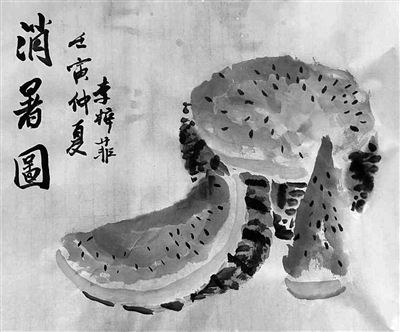 消暑圖
壬寅仲夏
李婷菲